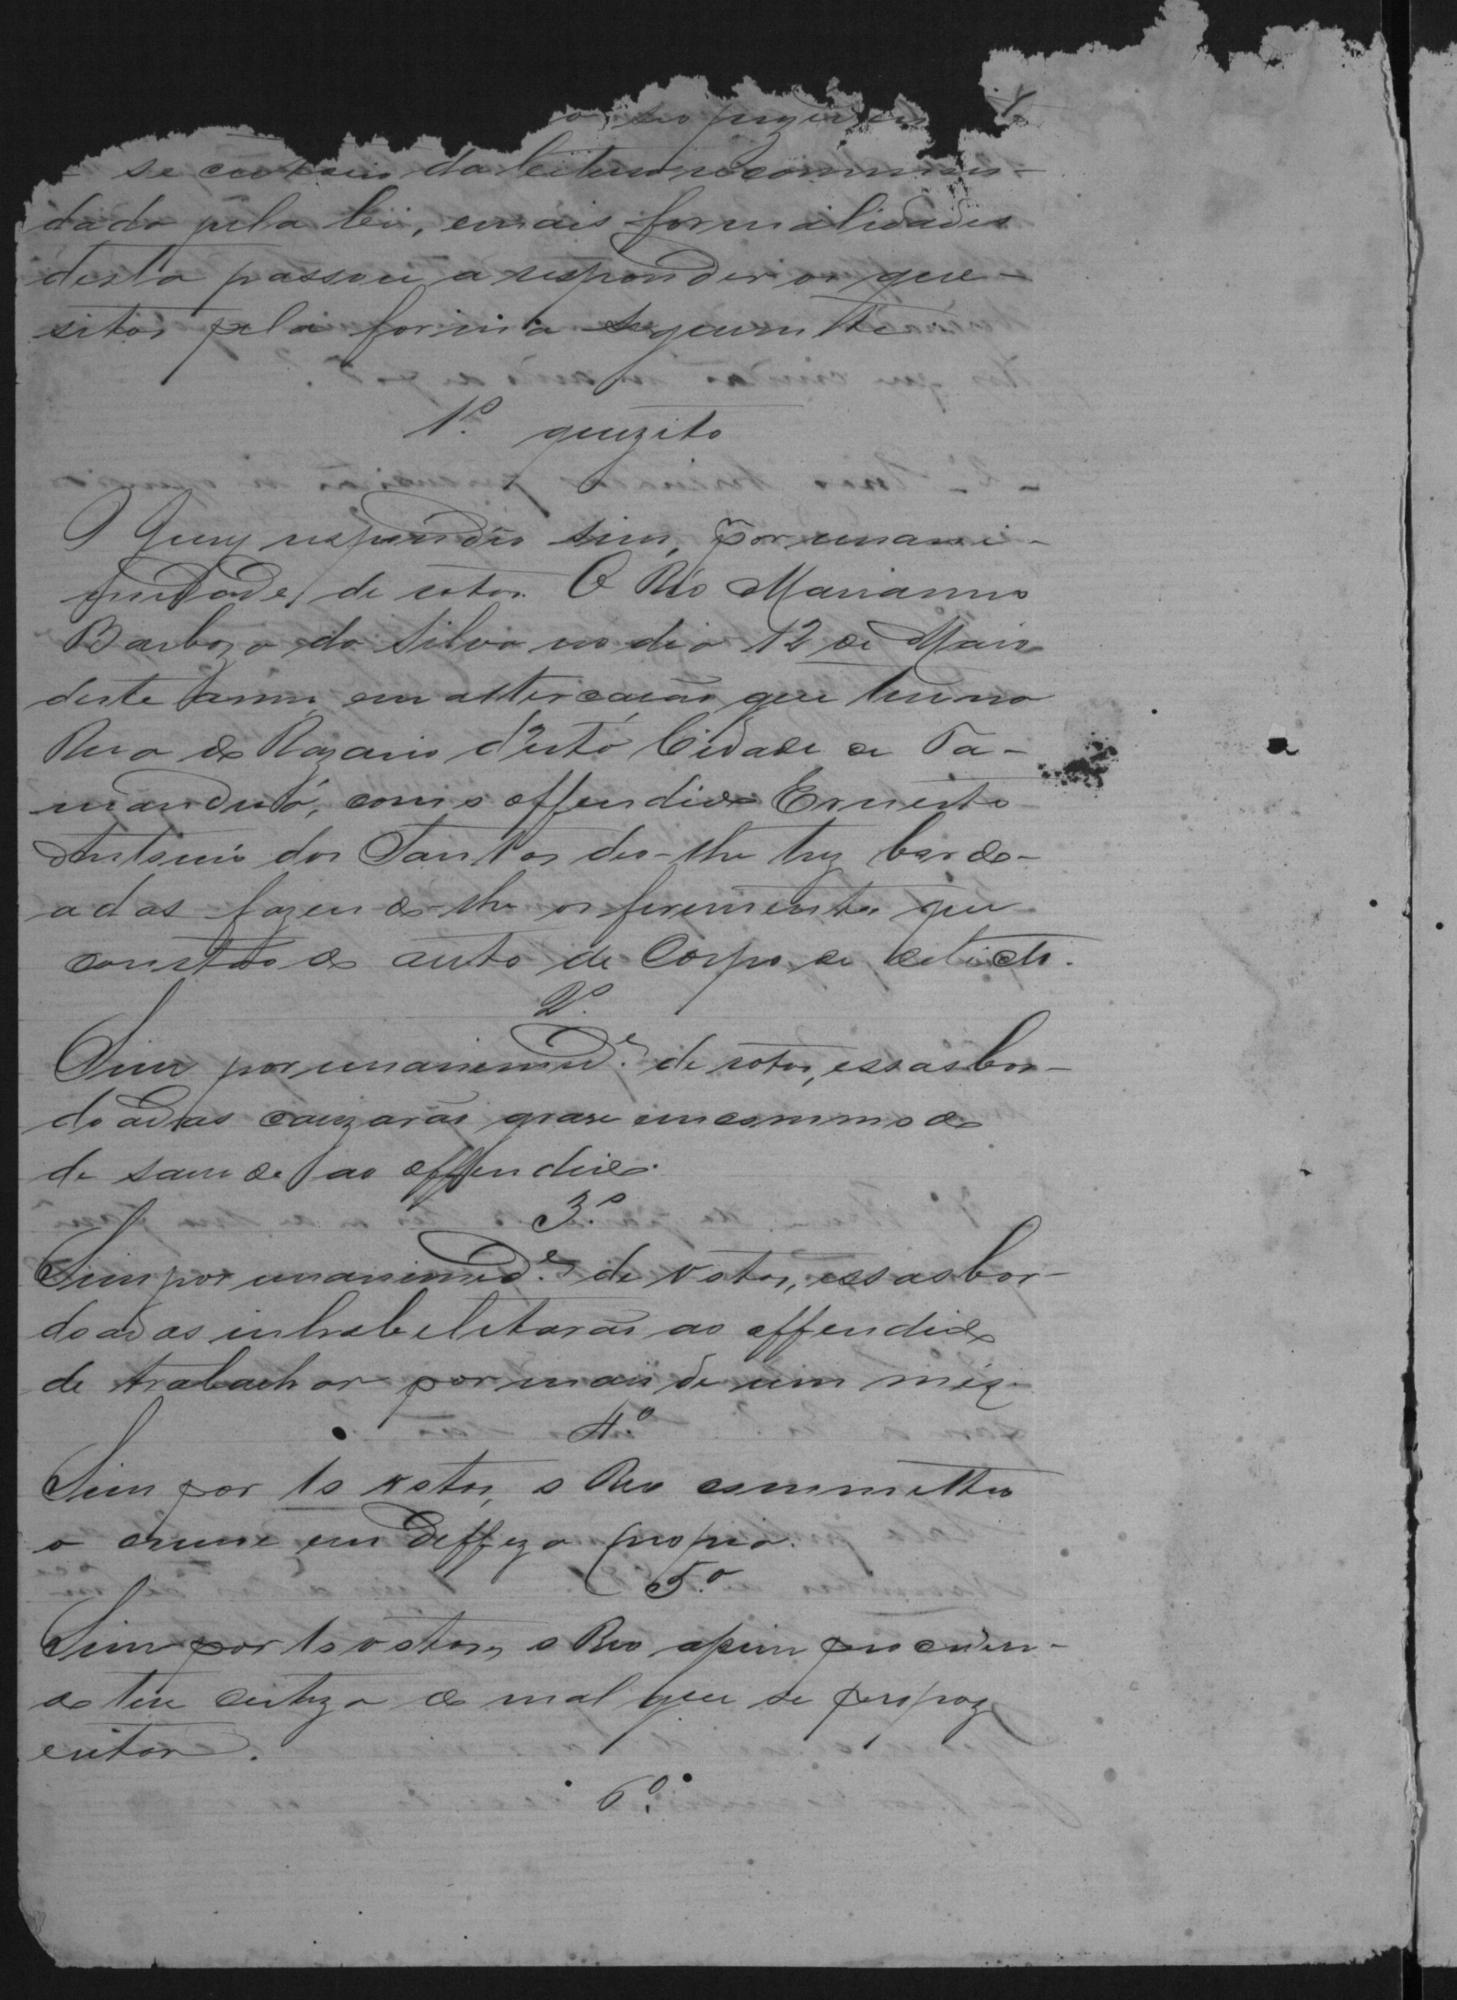 da leitura recommen-
dada pela lei, e mais formalidades
desta passou a responder os que-
sitos pela forma seguinte
1º quezito
O Jury respondeo sim, por unani-
midade de votos. O Reo Marianno
Barboza da Silva no dia 12 de Maio
deste anno em altercação que teve na
Rua do Rozario d'esta Cidade de Ta-
manduá, com o offendido Ernesto
Antonio dos Santos deo-lhe trez bordo-
adas fazendo-lhe os ferimentos que
constão do auto de Corpo de delicto.
2º
Sim por unanimid.e de votos, essas bor-
doadas cauzarão grave incommodo
de saude ao offendido.
3.º
Sim por unanimid.e de votos, essas bor-
doadas inhabelitarão ao offendido
de trabalhar por mais de um mez.
4.º
Sim por 10 votos, o Reo commetteo
o crime em deffeza propria.
5.º
Sim por 10 votos, o Reo assim proceden-
do teve certeza do mal que se propoz
evitar.
6º.